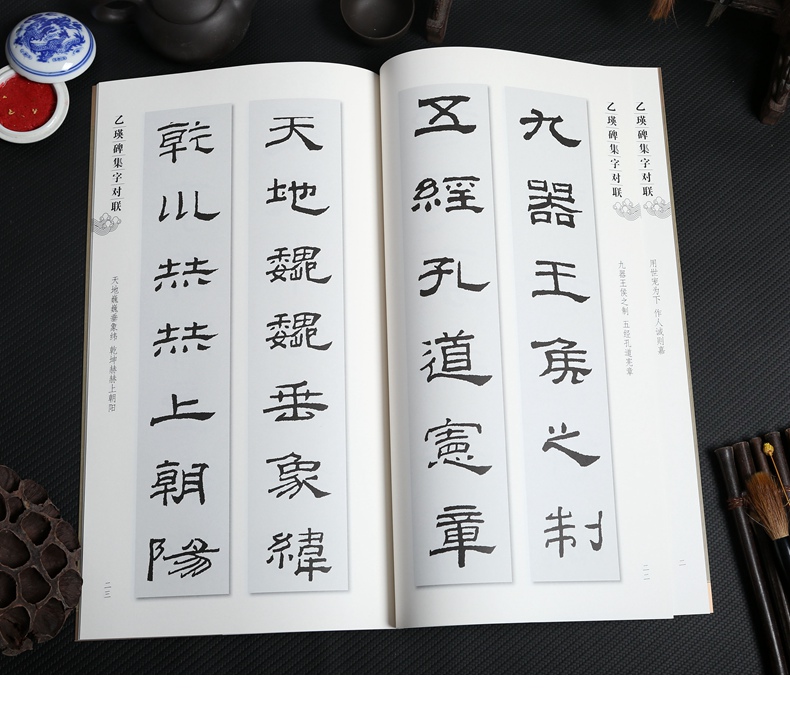 乙瑛碑集字对联
用世宠为下 作人诚则嘉
二
乙瑛碑集字对联
九器王侯之制 五经孔道宪章
二二
九器王侯之制
五經孔道憲章
天地魏魏垂象緯
乾川赫赫上朝陽
乙瑛碑集字对联
天地巍巍垂象纬 乾坤赫赫上朝阳
二三